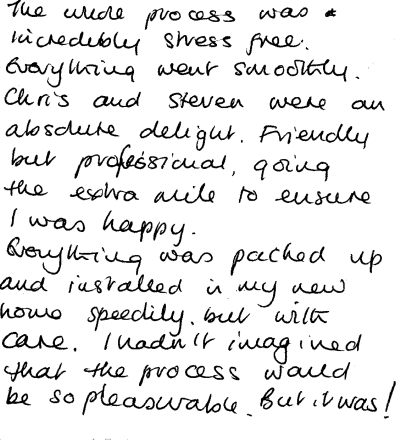 The whole process was
incredibly stress free.
Everything went smoothly.
Chris and Steven were an
absolute delight. Friendly
but professional, going
the extra mile to ensure
I was happy.
Everything was packed up
and installed in my new
home speedily, but with
care. I hadn't imagined
that the process would
be so pleasurable. But it was!